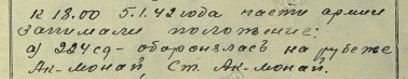 к 18.00 5.1.42 года части армии
занимали положение:
а) 224сд - оборонялась на рубеже
Ак-монай, Ст. Ак-монай.